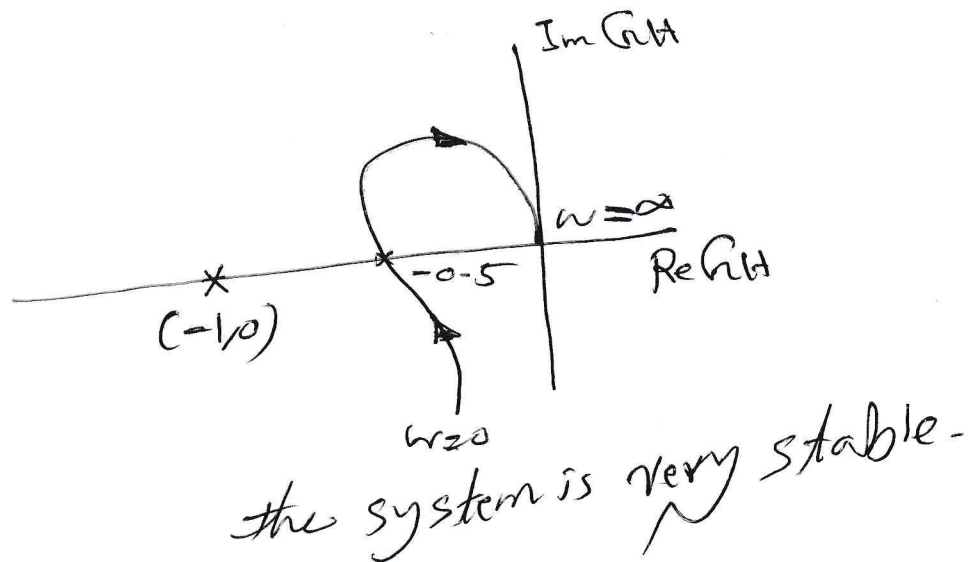 Im GH
w = ∞
-0.5
Re GH
(-1,0)
w=0
the system is very stable.